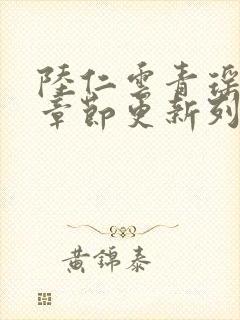 陸仁雲青瑶
章節更新列
黃錦泰